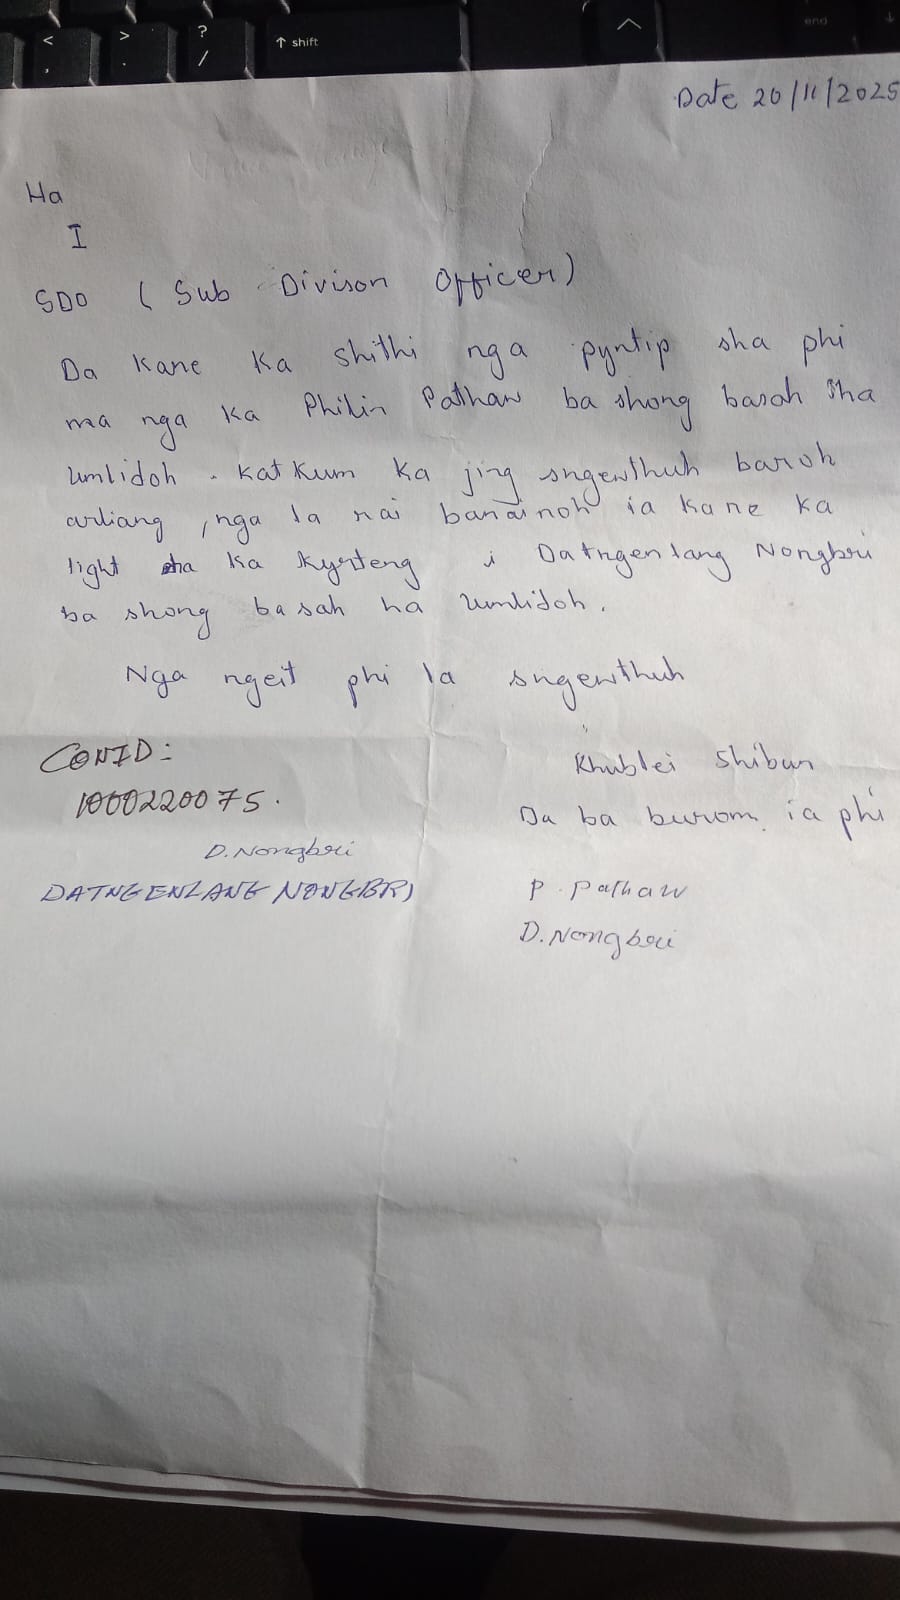 < , > . ? / ↑ shift ^ end ↓
Date 20/11/2025
Ha
I
SDO ( Sub Divison Officer)
Da Kane Ka Shithi nga pyntip sha phi
ma nga Ka Philin Pathaw ba shong basah Sha
Umlidoh. Katkum Ka jing sngewthuh baroh
arliang, nga la nai banainoh ia Kane Ka
light sha Ka Kyrteng i Datngenlang Nongbri
ba shong basah ha Umlidoh.
Nga ngeit phi la sngewthuh
CONID: Khublei Shibun
1000220075. Da ba burom ia phi
D.Nongbri
DATNGENLANG NONGBRI P. Pathaw
D.Nongbri